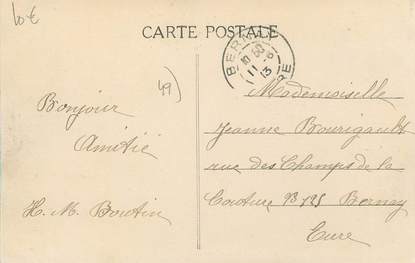 10€
CARTE POSTALE
BERNAY
EURE
11-6
13
49)
Bonjour
Amitié
H. M. Boutin
Mademoiselle
Jeanne Bourigault
rue des Champs de la
Couture Bernay
Eure